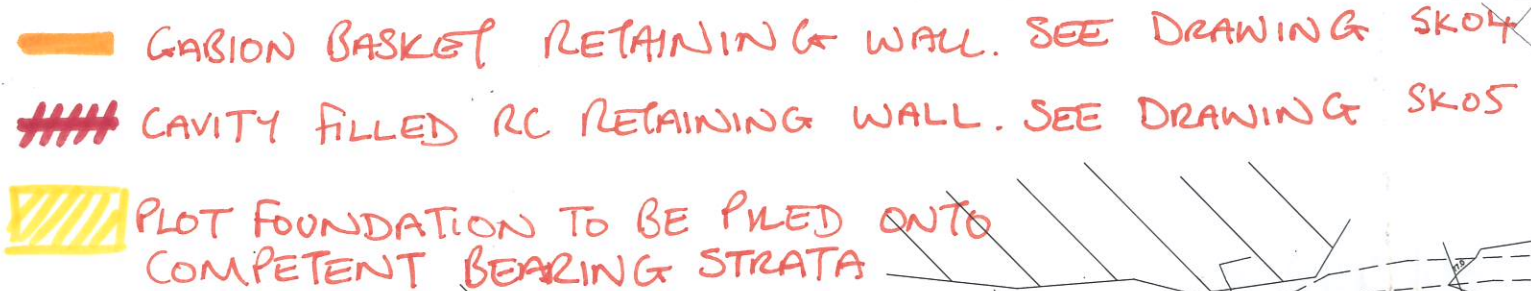 GABION BASKET RETAINING WALL. SEE DRAWING SK04
CAVITY FILLED RC RETAINING WALL. SEE DRAWING SK05
PLOT FOUNDATION TO BE PILED ONTO
COMPETENT BEARING STRATA